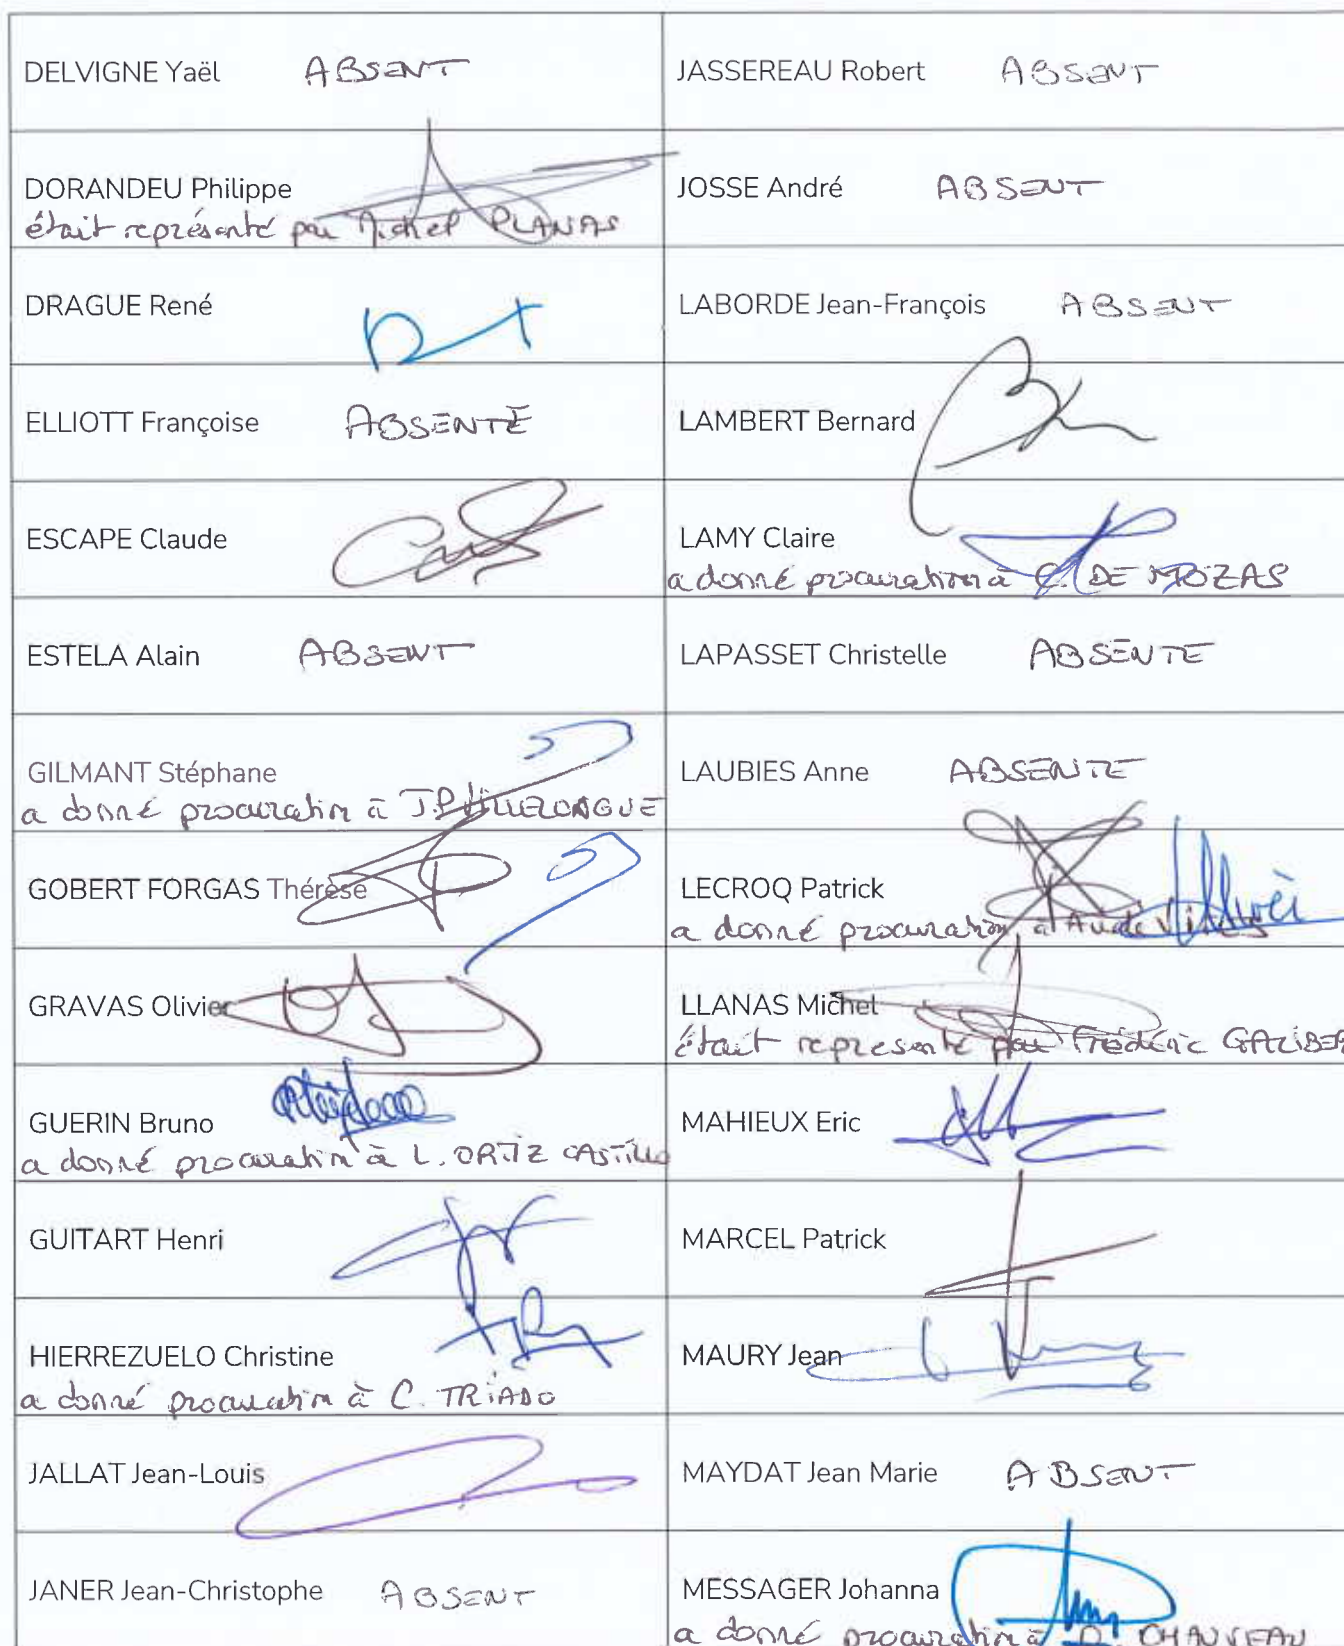 DELVIGNE Yaël ABSENT
DORANDEU Philippe
était représenté par Michel PLANAS
DRAGUE René
ELLIOTT Françoise ABSENTE
ESCAPE Claude
ESTELA Alain ABSENT
GILMANT Stéphane
a donné procuration à J.P VILLELONGUE
GOBERT FORGAS Thérèse
GRAVAS Olivier
GUERIN Bruno
a donné procuration à L. ORTIZ CASTILLO
GUITART Henri
HIERREZUELO Christine
a donné procuration à C. TRIADO
JALLAT Jean-Louis
JANER Jean-Christophe ABSENT
JASSEREAU Robert ABSENT
JOSSE André ABSENT
LABORDE Jean-François ABSENT
LAMBERT Bernard
LAMY Claire
a donné procuration à C. DE MOZAS
LAPASSET Christelle ABSENTE
LAUBIES Anne ABSENTE
LECROQ Patrick
a donné procuration à Aude
LLANAS Michel
était représenté par Frédéric
MAHIEUX Eric
MARCEL Patrick
MAURY Jean
MAYDAT Jean Marie ABSENT
MESSAGER Johanna
a donné procuration à CHAUVEAU